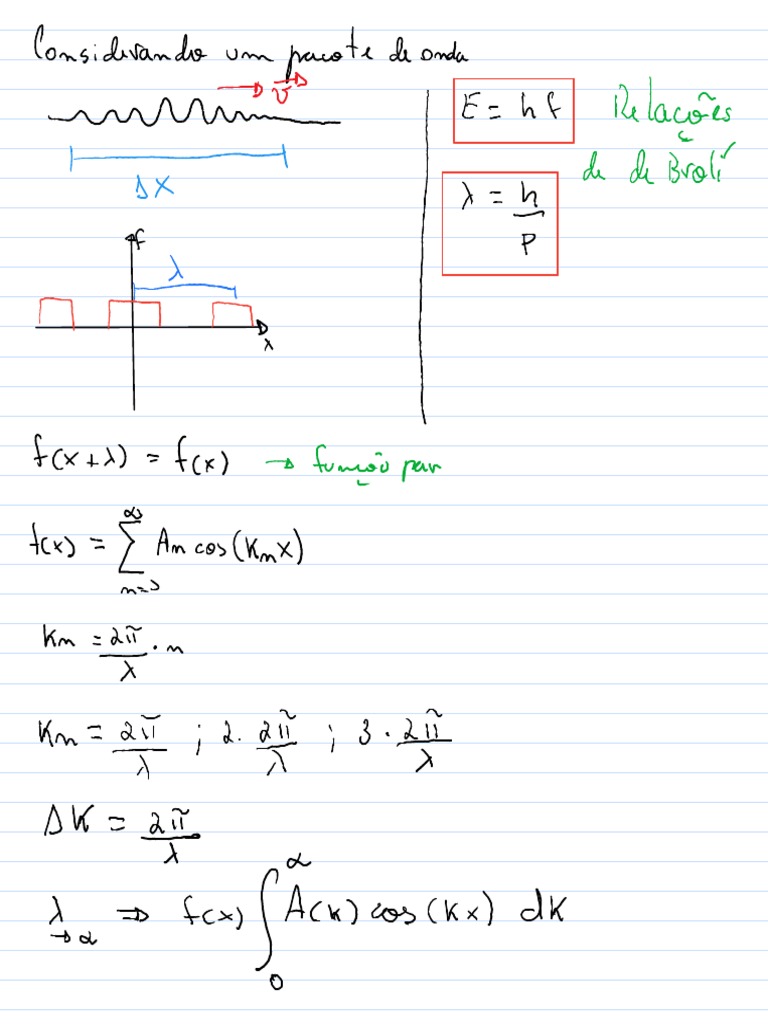 Considerando um pacote de onda
v
Δx
E = h f
λ = h/p
Relações
de de Brogli
f
λ
x
f(x+λ) = f(x) → função par
f(x) = ∑_{n=0}^{∞} An cos(Knx)
Kn = 2π/λ · n
Kn = 2π/λ ; 2 · 2π/λ ; 3 · 2π/λ
ΔK = 2π/λ
λ→∞ ⇒ f(x) ∫_0^∞ A(K) cos(Kx) dK